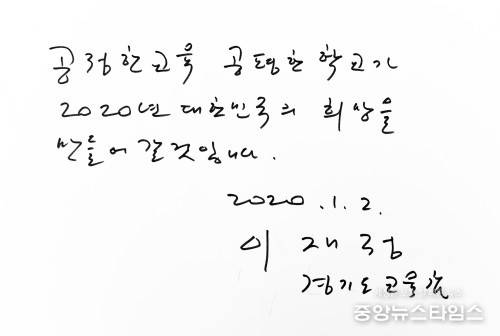 공정한 교육 공평한 학교가
2020년 대한민국의 희망을
만들어 갈 것입니다.
2020. 1. 2.
이 재 정
경기도교육감
중앙뉴스타임스